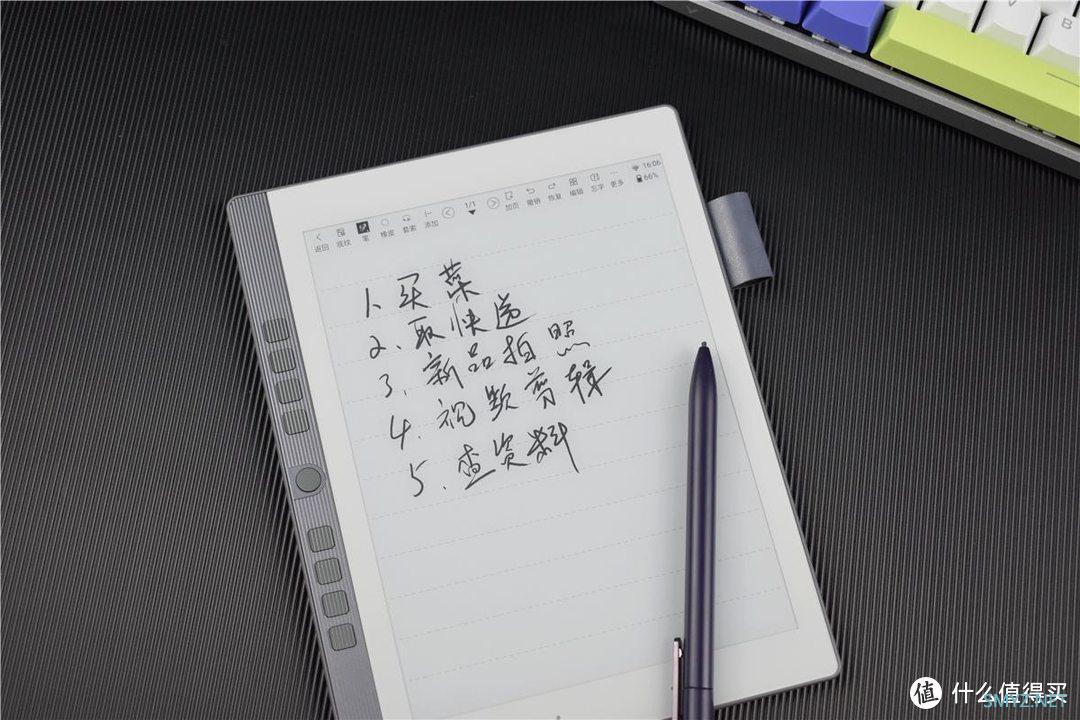 返回 底纹 笔 橡皮 套索 添加 1/1 加页 撤销 恢复 编辑 忘字 更多 16:06 66%
1、买菜
2、取快递
3、新品拍照
4、视频剪辑
5、查资料
V
B
值 什么值得买
SNHZ.NET